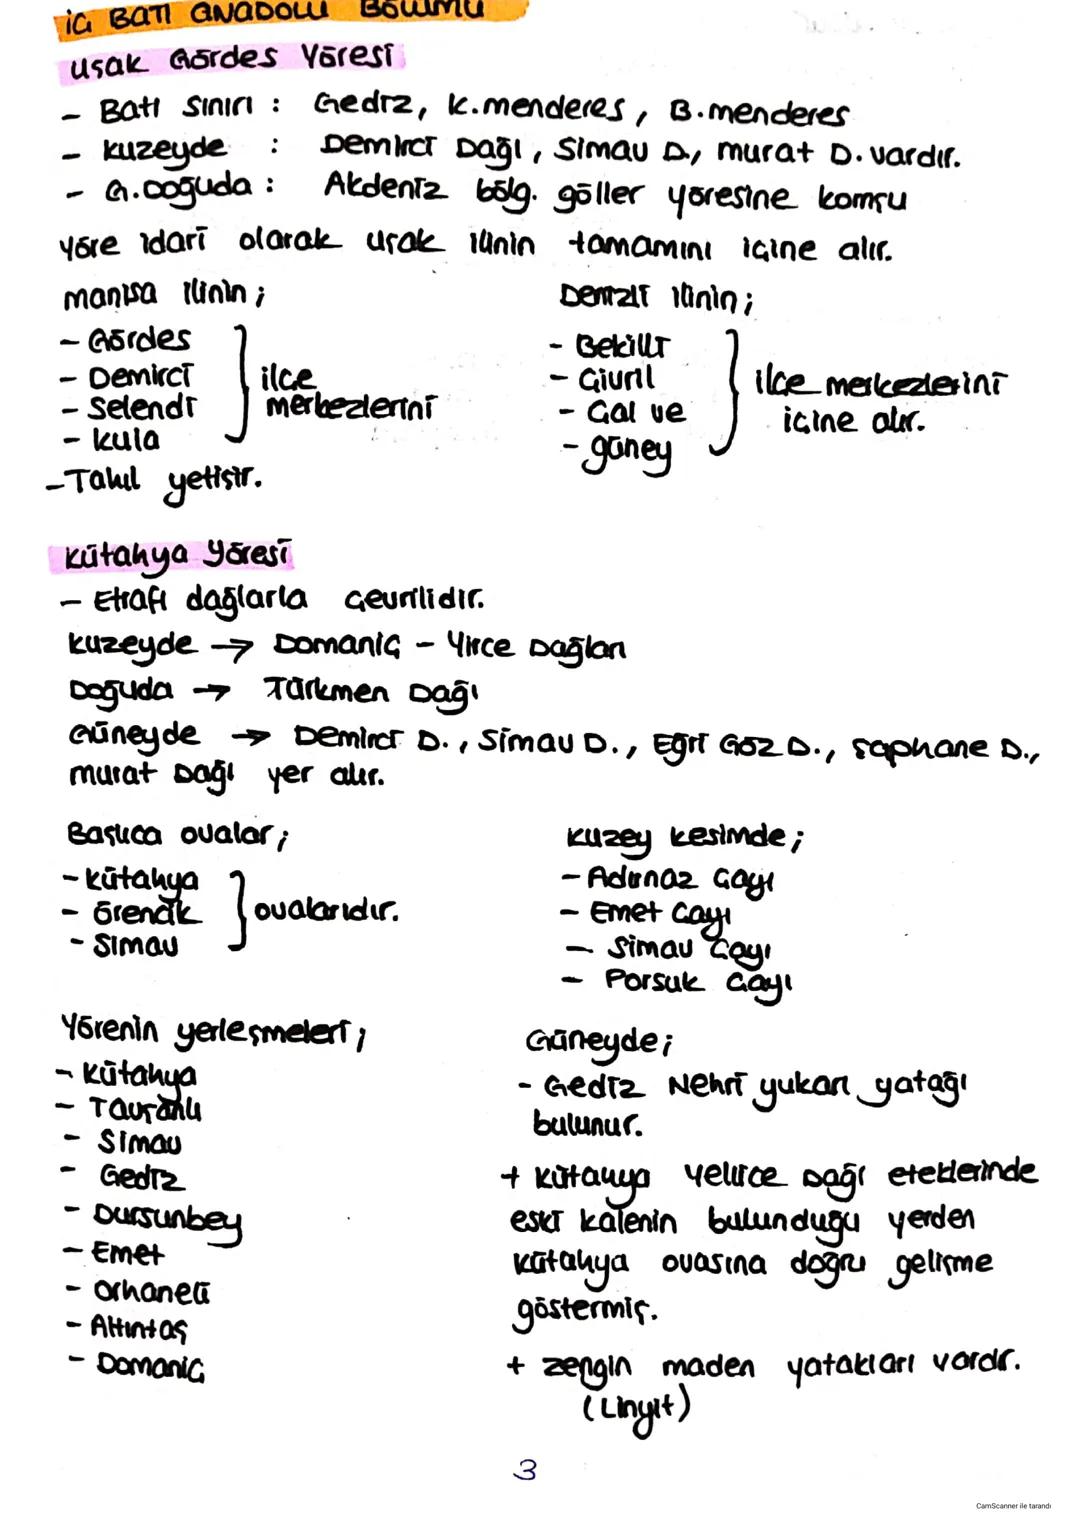 İÇ BATI ANADOLU BÖLÜMÜ
Uşak Gördes Yöresi
- Batı Sınırı : Gediz, K.menderes, B.menderes
- Kuzeyde : Demirci Dağı, Simav D., murat D. vardır.
- G.Doğuda : Akdeniz bölg. göller yöresine komşu
Yöre idari olarak uşak ilinin tamamını içine alır.
manisa ilinin ;
- Gördes
- Demirci
- Selendi
- kula
ilçe
merkezlerini
- Tahıl yetiştir.
Denizli ilinin ;
- Bekilli
- Çivril
- Çal ve
- güney
ilçe merkezlerini
içine alır.
Kütahya Yöresi
- Etrafı dağlarla çevrilidir.
Kuzeyde → Domaniç - Yirce Dağları
Doğuda → Türkmen Dağı
Güneyde → Demirci D., Simav D., Eğri Göz D., şaphane D.,
murat Dağı yer alır.
Başlıca ovalar ;
- Kütahya
- Örencik
- Simav
ovalarıdır.
Kuzey kesimde ;
- Adırnaz Çayı
- Emet Çayı
- Simav Çayı
- Porsuk Çayı
Yörenin yerleşmeleri ;
- Kütahya
- Tavşanlı
- Simav
- Gediz
- Dursunbey
- Emet
- Orhaneli
- Altıntaş
- Domaniç
Güneyde ;
- Gediz Nehri yukarı yatağı
bulunur.
+ Kütahya Yellice Dağı eteklerinde
eski kalenin bulunduğu yerden
Kütahya ovasına doğru gelişme
göstermiş.
+ zengin maden yatakları vardır.
(Linyit)
3
CamScanner ile tarandı